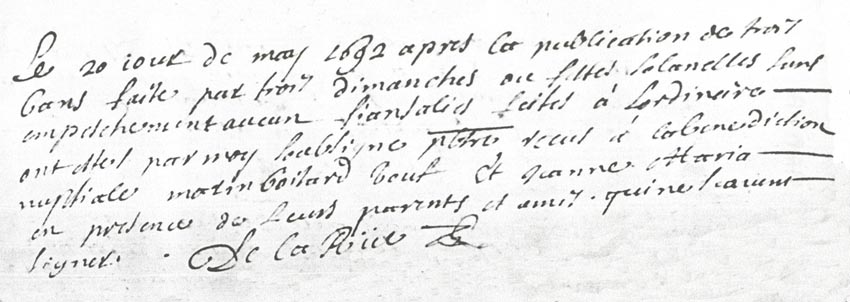 Le 20 iour de may 1692 apres la publication de trois
bans faite par trois dimanches ou festes solanelles sans
empeschement aucun fiansalies faites à lordineire
ont estes par moy soubsigne pbtre recus à la benediction
nuptiale marin boilard veuf et Jeanne Maria
en presence de leurs parents et amis qui ne scavent
signer. De la Rüe